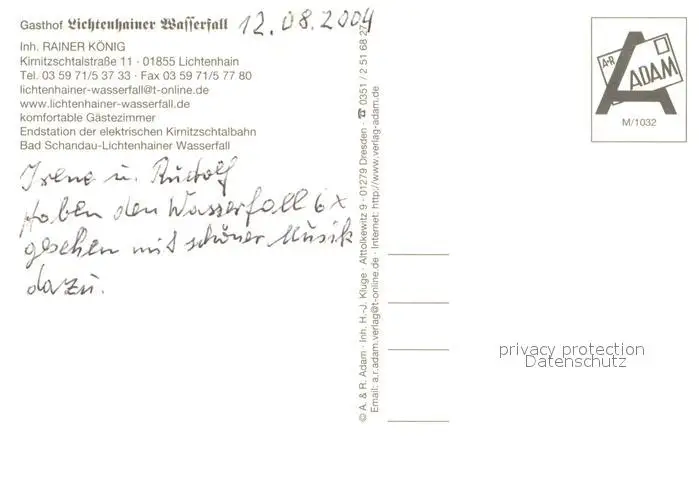 Gasthof Lichtenhainer Wasserfall 12.08.2004
Inh. RAINER KÖNIG
Kirnitzschtalstraße 11 · 01855 Lichtenhain
Tel. 03 59 71/5 37 33 · Fax 03 59 71/5 77 80
lichtenhainer-wasserfall@t-online.de
www.lichtenhainer-wasserfall.de
komfortable Gästezimmer
Endstation der elektrischen Kirnitzschtalbahn
Bad Schandau-Lichtenhainer Wasserfall
Irene u. Rudolf
Haben den Wasserfall 6x
gesehen mit schöner Musik
dazu.
© A. & R. Adam · Inh. H.-J. Kluge · Alttolkewitz 9 · 01279 Dresden · ☎ 0351 / 2 51 68 27
Email: a.r.adam.verlag@t-online.de · Internet: http://www.verlag-adam.de
A+R
ADAM
M/1032
privacy protection
Datenschutz